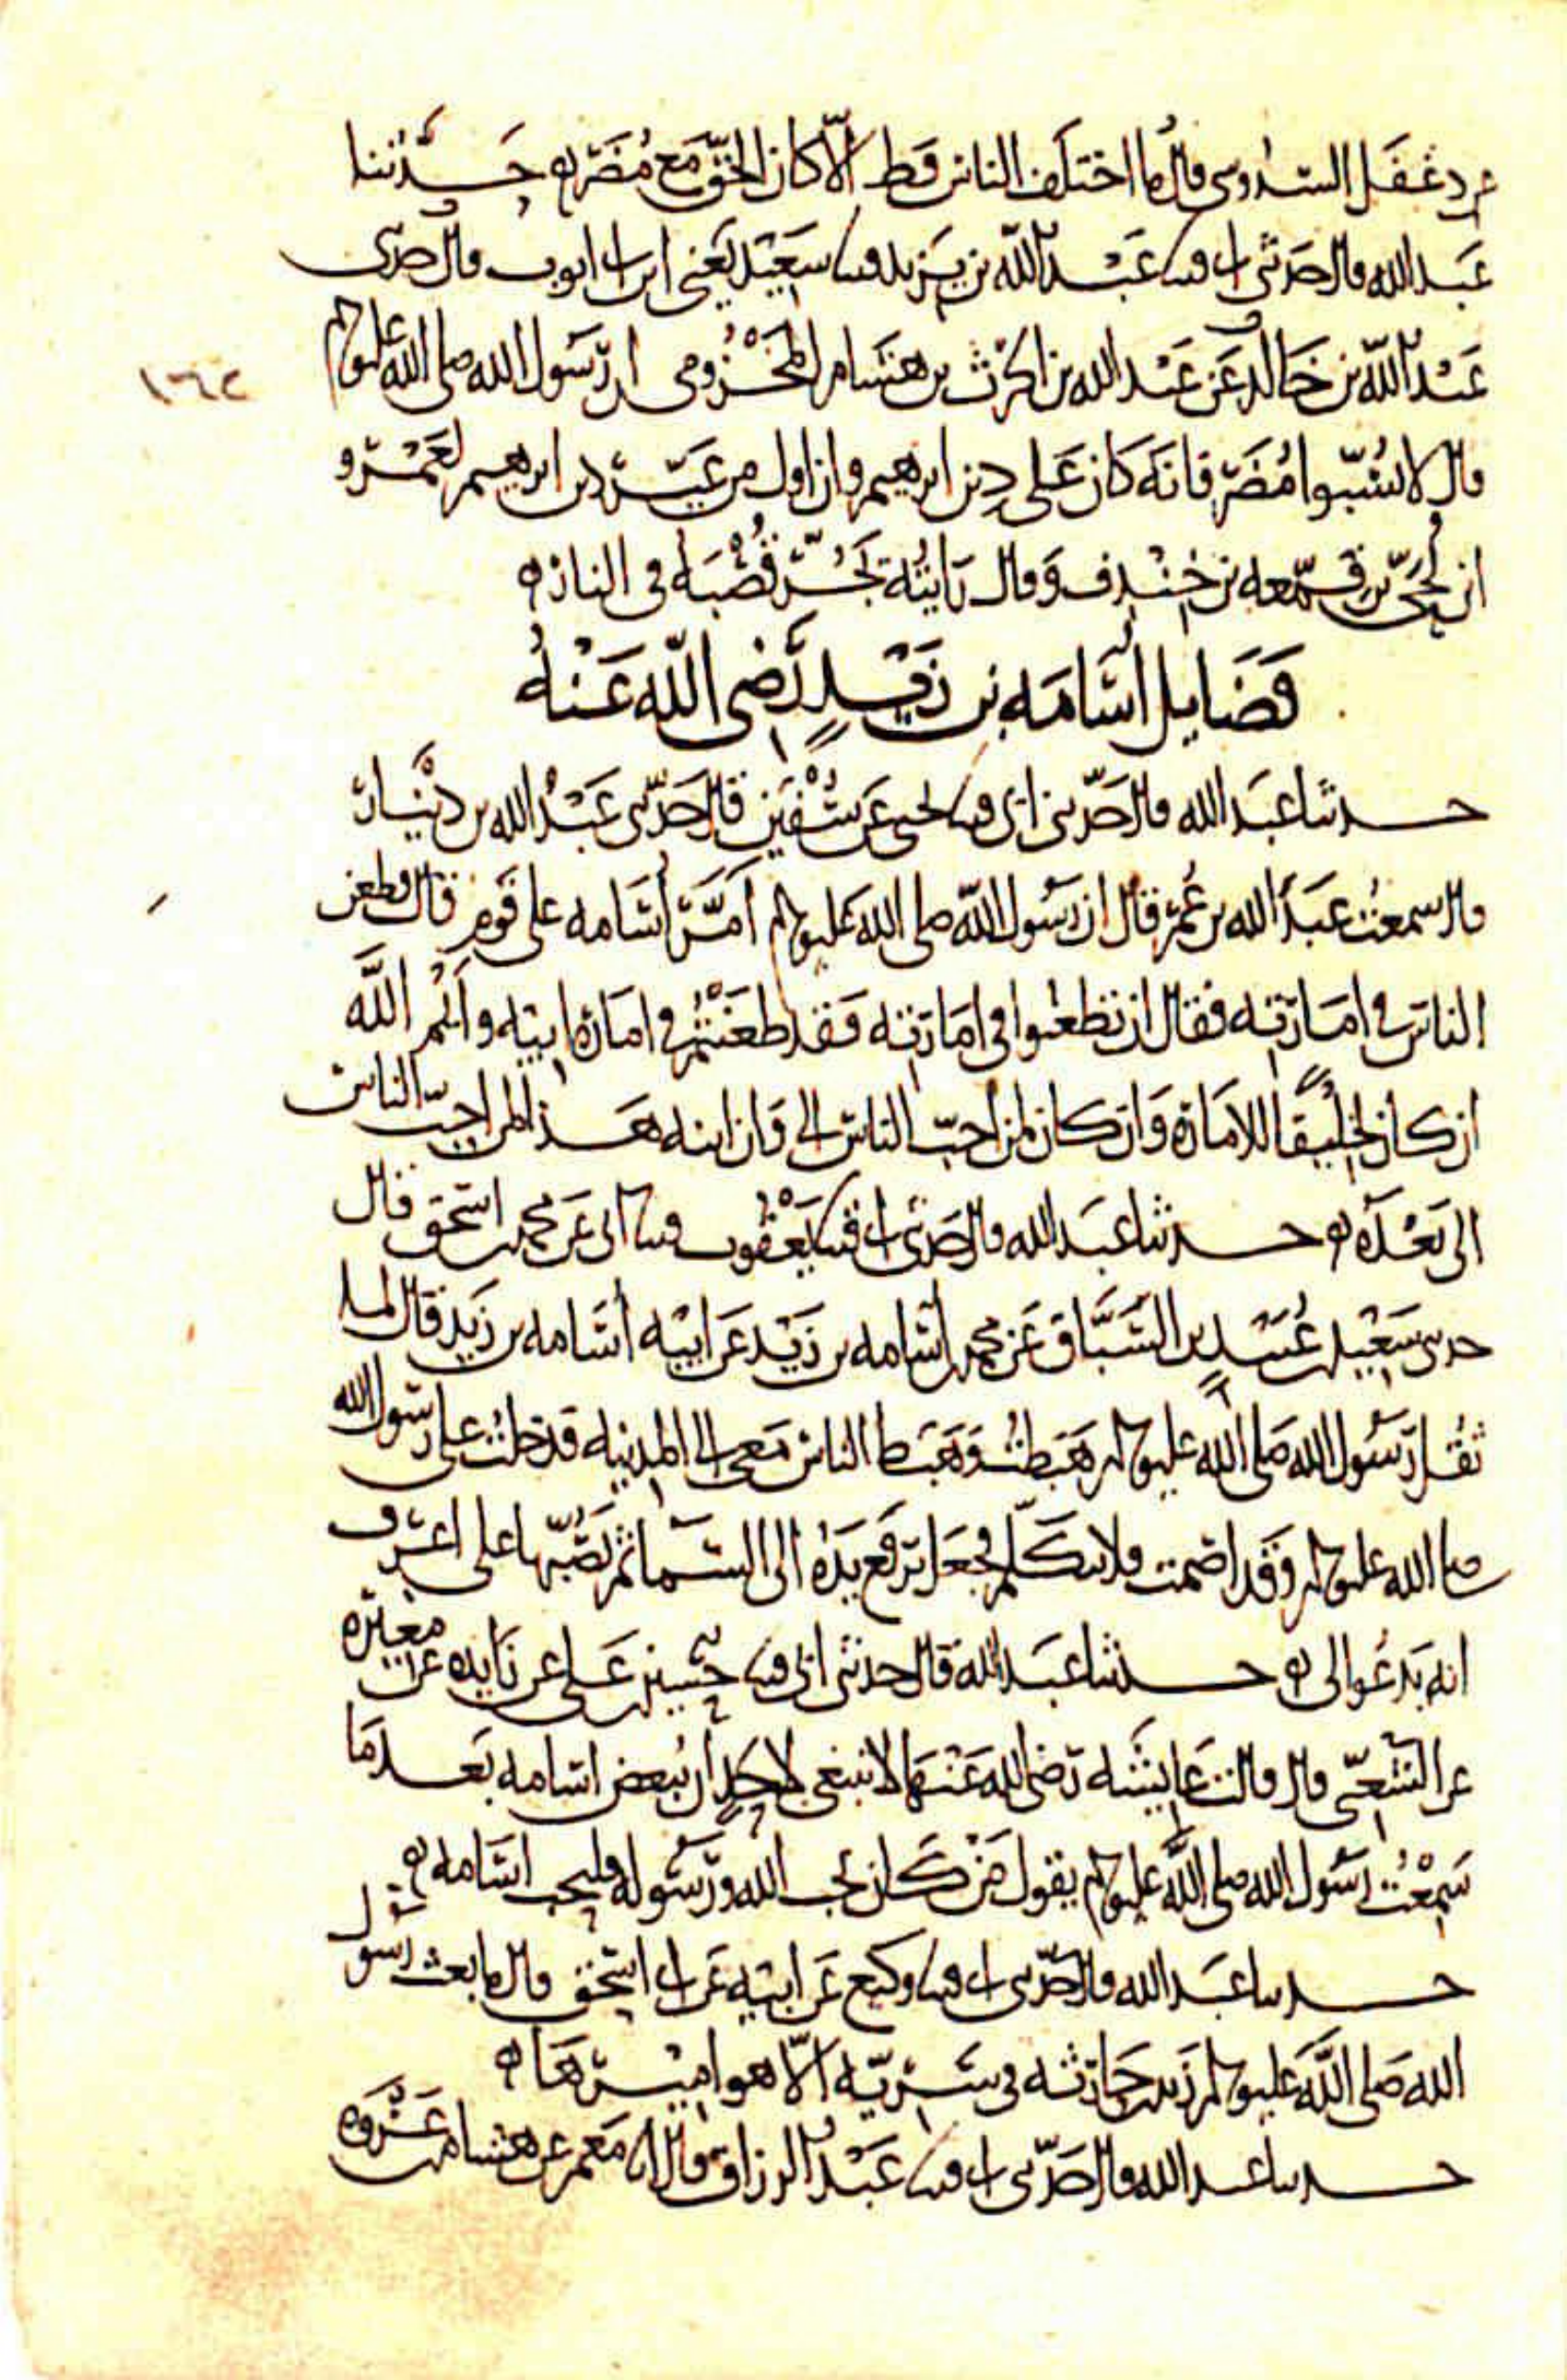 عن دغفل السدوسي قال ما اختلف الناس قط الا كان الحق مع مضر حدثنا
عبد الله قال حدثني ابي قثنا عبد الله بن يزيد قثنا سعيد يعني ابن ابي ايوب قال حدثني
عبد الله بن خالد عن عبد الله بن الحرث بن هشام المخزومي ان رسول الله صلى الله عليه وسلم
١٦٢
قال لا تسبوا مضر فانه كان على دين ابرهيم وان اول من غير دين ابرهيم لعمرو
ابن لحي بن قمعه بن خندف وقال رايته يجر قصبه في النار
فضايل اسامه بن زيد رضي الله عنه
حدثنا عبد الله قال حدثني ابي قثنا يحيى عن سفين قال حدثني عبد الله بن دينار
قال سمعت عبد الله بن عمر قال ان رسول الله صلى الله عليه وسلم امر اسامه على قوم قال فطعن
الناس في امارته فقال ان تطعنوا في امارته فقد طعنتم في امارة ابيه وايم الله
ان كان لخليقا للامارة وان كان لمن احب الناس الي وان ابنه هذا لمن احب الناس
الي بعده حدثنا عبد الله قال حدثني ابي قثنا يعقوب قثنا ابي عن محمد بن اسحق قال
حدثني سعيد بن عبيد بن السباق عن محمد بن اسامه بن زيد عن ابيه اسامه بن زيد قال لما
ثقل رسول الله صلى الله عليه وسلم هبطت وهبط الناس معي الى المدينه فدخلت على رسول الله
صلى الله عليه وسلم وقد اصمت فلا يتكلم فجعل يرفع يده الى السما ثم يصبها علي اعرف
انه يدعوا لي حدثنا عبد الله قال حدثني ابي قثنا حسين بن علي عن زايده عن مغيره
عن الشعبي قال قالت عايشه رضي الله عنها لا ينبغي لاحد ان يبغض اسامه بعد ما
سمعت رسول الله صلى الله عليه وسلم يقول من كان يحب الله ورسوله فليحب اسامه
حدثنا عبد الله قال حدثني ابي قثنا وكيع عن ابيه عن ابي اسحق قال ما بعث رسول
الله صلى الله عليه وسلم زيد بن حارثه في سريه الا هو اميرها
حدثنا عبد الله قال حدثني ابي قثنا عبد الرزاق قال انا معمر عن هشام بن عروه